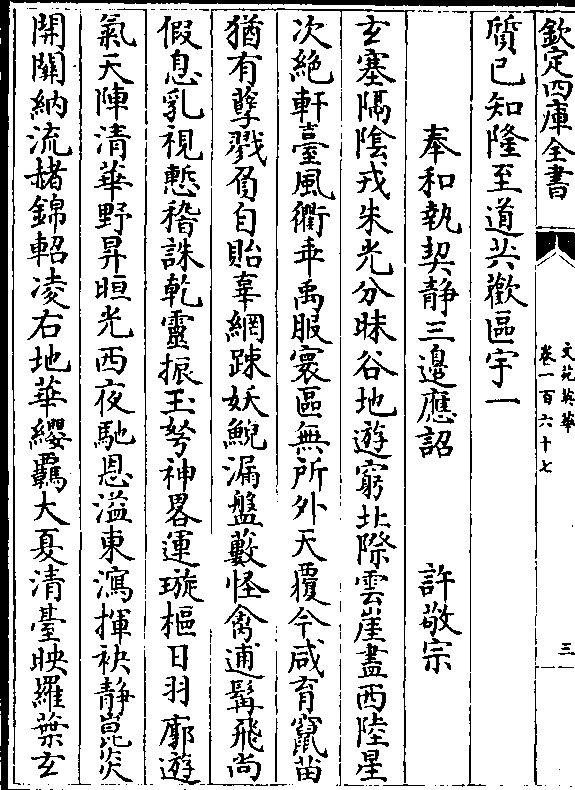 欽定四庫全書
文苑英華
卷一百六十七
三
質已知隆至道共歡區宇一
奉和執契静三邉應詔 許敬宗
玄塞隔隂戎朱光分昧谷地遊窮北際雲崖盡西陸星
次絶軒臺風衢乖禹服寰區無所外天覆今咸育竄苗
猶有孽戮負自貽辜網踈妖鯢漏盤藪怪禽逋髯飛尚
假息乳視慙稽誅乾靈振玉弩神畧運璇樞日羽廓遊
氣天陣清華野昇晅光西夜馳恩溢東瀉揮袂静崑炎
開關納流赭錦軺凌右地華纓羈大夏清臺映羅葉玄